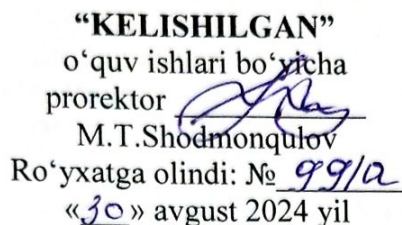 “KELISHILGAN”
o‘quv ishlari bo‘yicha
prorektor
M.T.Shodmonqulov
Ro‘yxatga olindi: № 99/a
«30» avgust 2024 yil